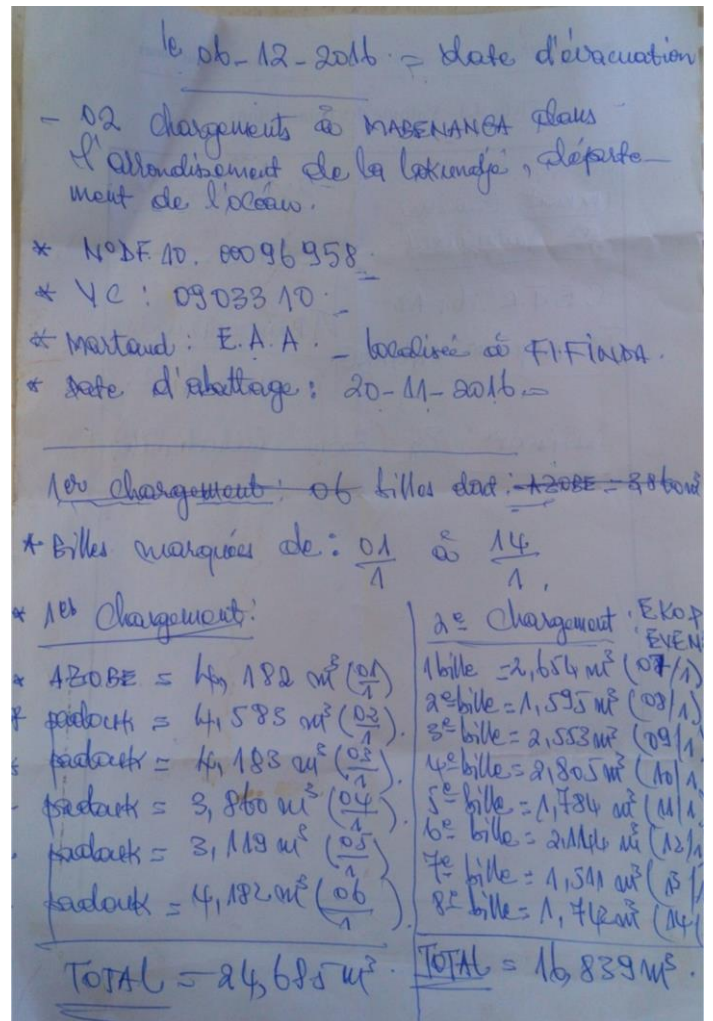 le 06-12-2016 = Date d'évacuation
- 02 chargements à MABENANGA dans
l'arrondissement de la lokundjé, départe-
ment de l'océan.
* N° DF 10. 00096958
* VC : 0903310
* Martaud : E.A.A. - localisée à FIFINDA.
* Date d'abattage : 20-11-2016
1er chargement : 06 billes dont : AZOBE = 3,860m³
* Billes marquées de : 01/1 à 14/1.
* 1er Chargement :
* AZOBE = 4,182 m³ (01/1)
* padouk = 4,583 m³ (02/1).
padouk = 4,183 m³ (03/1)
- padouk = 3,860 m³ (04/1).
padouk = 3,119 m³ (05/1)
padouk = 4,182 m³ (06/1).
TOTAL = 24,685 m³.
2e Chargement : EKOP
EVEN
1 bille = 2,654 m³ (07/1)
2e bille = 1,595 m³ (08/1)
3e bille = 2,553 m³ (09/1
4e bille = 2,805 m³ (10/1
5e bille = 1,784 m³ (11/1
6e bille = 2,144 m³ (12/1
7e bille = 1,511 m³ (13/1
8e bille = m³ (14/
TOTAL = 16,839 m³.